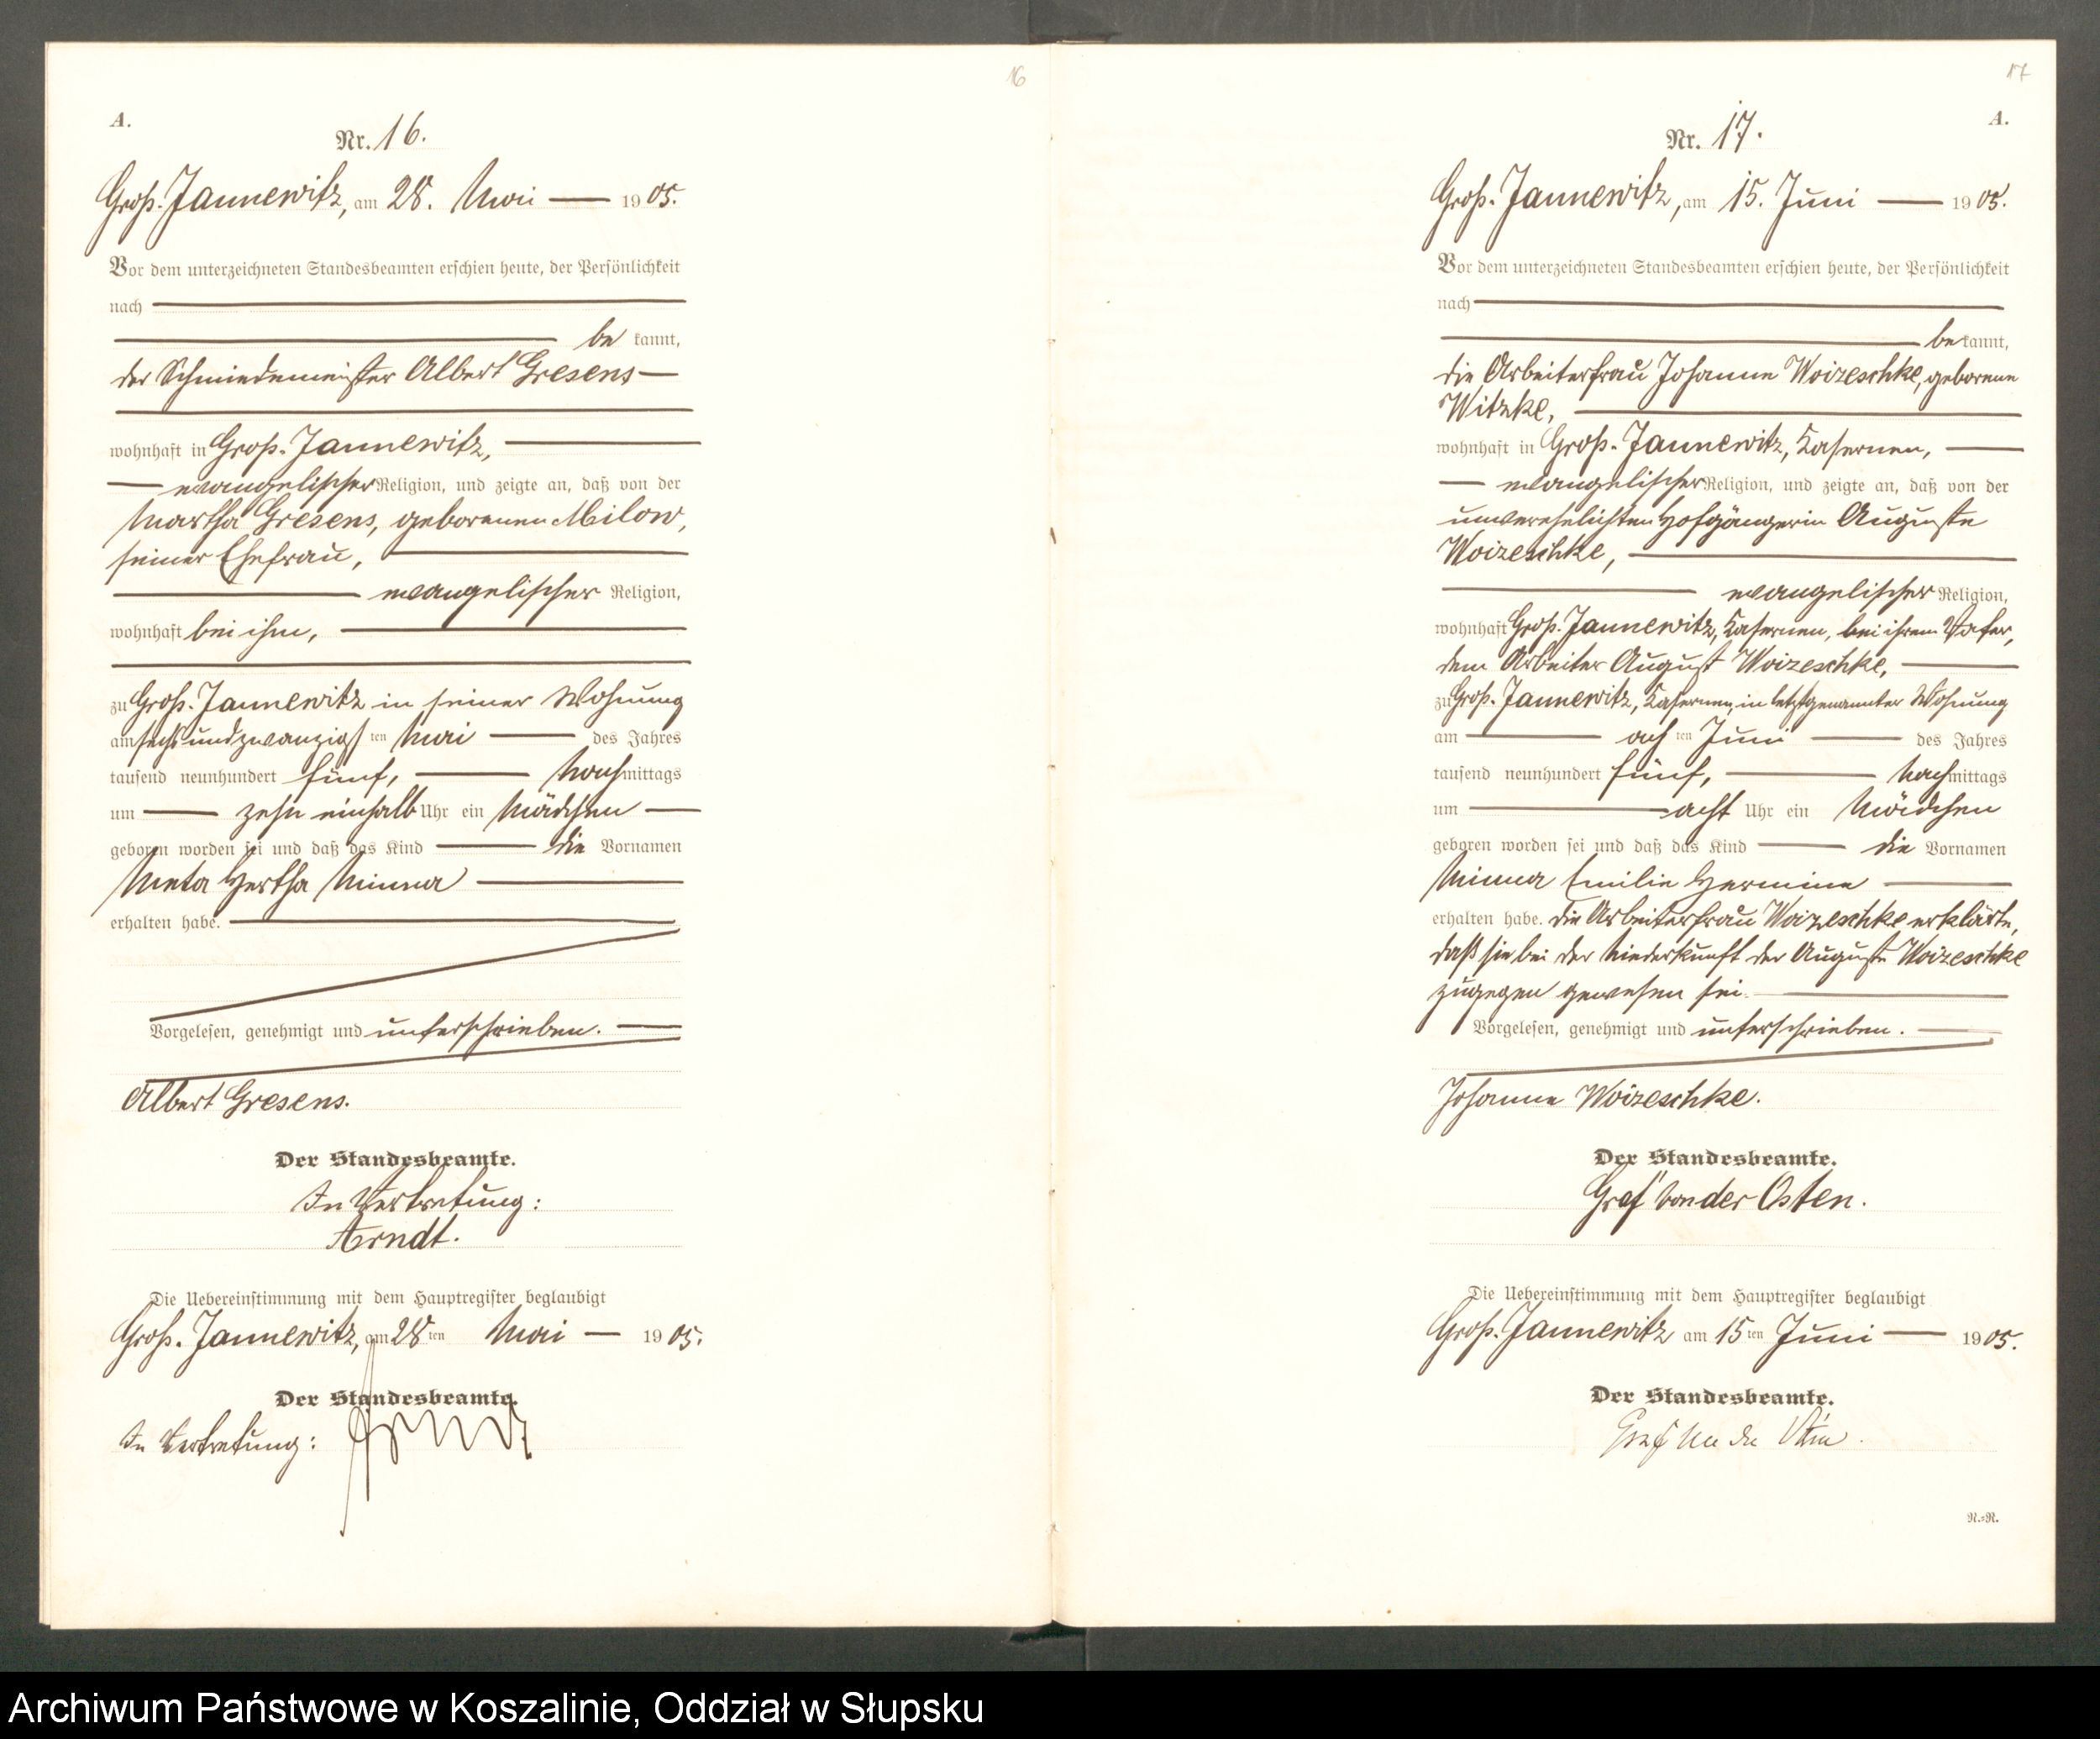 16
A.
Nr. 16.
Groß. Jannewitz, am 28. Mai 1905.
Vor dem unterzeichneten Standesbeamten erschien heute, der Persönlichkeit
nach
bekannt,
der Schmiedemeister Albert Gresens
wohnhaft in Groß. Jannewitz,
evangelischer Religion, und zeigte an, daß von der
Martha Gresens, geborenen Milow,
seiner Ehefrau,
evangelischer Religion,
wohnhaft bei ihm,
zu Groß. Jannewitz in seiner Wohnung
am sechsundzwanzigsten Mai des Jahres
tausend neunhundert fünf, Nachmittags
um zehn einhalb Uhr ein Mädchen
geboren worden sei und daß das Kind die Vornamen
Meta Hertha Minna
erhalten habe.
Vorgelesen, genehmigt und unterschrieben.
Albert Gresens.
Der Standesbeamte.
In Vertretung:
Arndt.
Die Uebereinstimmung mit dem Hauptregister beglaubigt
Groß. Jannewitz, am 28ten Mai 1905.
Der Standesbeamte.
In Vertretung: Arndt
17
A.
Nr. 17.
Groß. Jannewitz, am 15. Juni 1905.
Vor dem unterzeichneten Standesbeamten erschien heute, der Persönlichkeit
nach
bekannt,
die Arbeiterfrau Johanne Woizeschke, geborene
Witzke,
wohnhaft in Groß. Jannewitz, Kasernen,
evangelischer Religion, und zeigte an, daß von der
unverehelichten Hofgängerin Auguste
Woizeschke,
evangelischer Religion,
wohnhaft Groß. Jannewitz, Kasernen, bei ihrem Vater,
dem Arbeiter August Woizeschke,
zu Groß. Jannewitz, Kasernen, in letztgenannter Wohnung
am achten Juni des Jahres
tausend neunhundert fünf, Nachmittags
um acht Uhr ein Mädchen
geboren worden sei und daß das Kind die Vornamen
Minna Emilie Hermine
erhalten habe. Die Arbeiterfrau Woizeschke erklärte,
daß sie bei der Niederkunft der Auguste Woizeschke
zugegen gewesen sei.
Vorgelesen, genehmigt und unterschrieben.
Johanne Woizeschke.
Der Standesbeamte.
Graf von der Osten.
Die Uebereinstimmung mit dem Hauptregister beglaubigt
Groß. Jannewitz am 15ten Juni 1905.
Der Standesbeamte.
Graf von der Osten.
R.=R.
Archiwum Państwowe w Koszalinie, Oddział w Słupsku